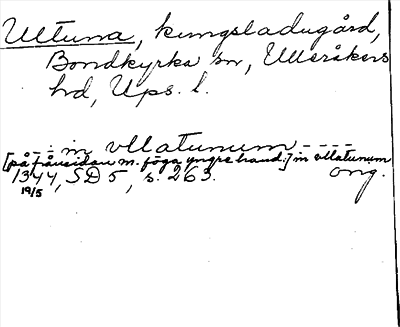 Ultuna, kungsladugård,
Bondkyrka sn, Ulleråkers
hd, Ups. l.
- - : in vllatunum - - - -
[på frånsidan m. föga yngre hand:] in vllatunum
1344, SD 5, s. 263. ong.
19/5